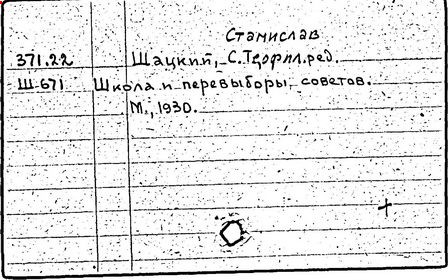 Станислав
371.22 Шацкий, С.Теофил.ред.
Ш-671 Школа и перевыборы советов.
М., 1930.